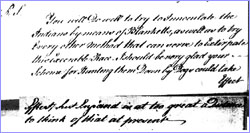 P.S.
You will Do well to try to Innoculate the
Indians by means of Blankets, as well as to try
Every other method that can serve to Extirpate
this Execrable Race. I should be very glad your
Scheme for Hunting them Down by Dogs could take
Effect
Effect, but England is at too great a Distance
to think of that at present